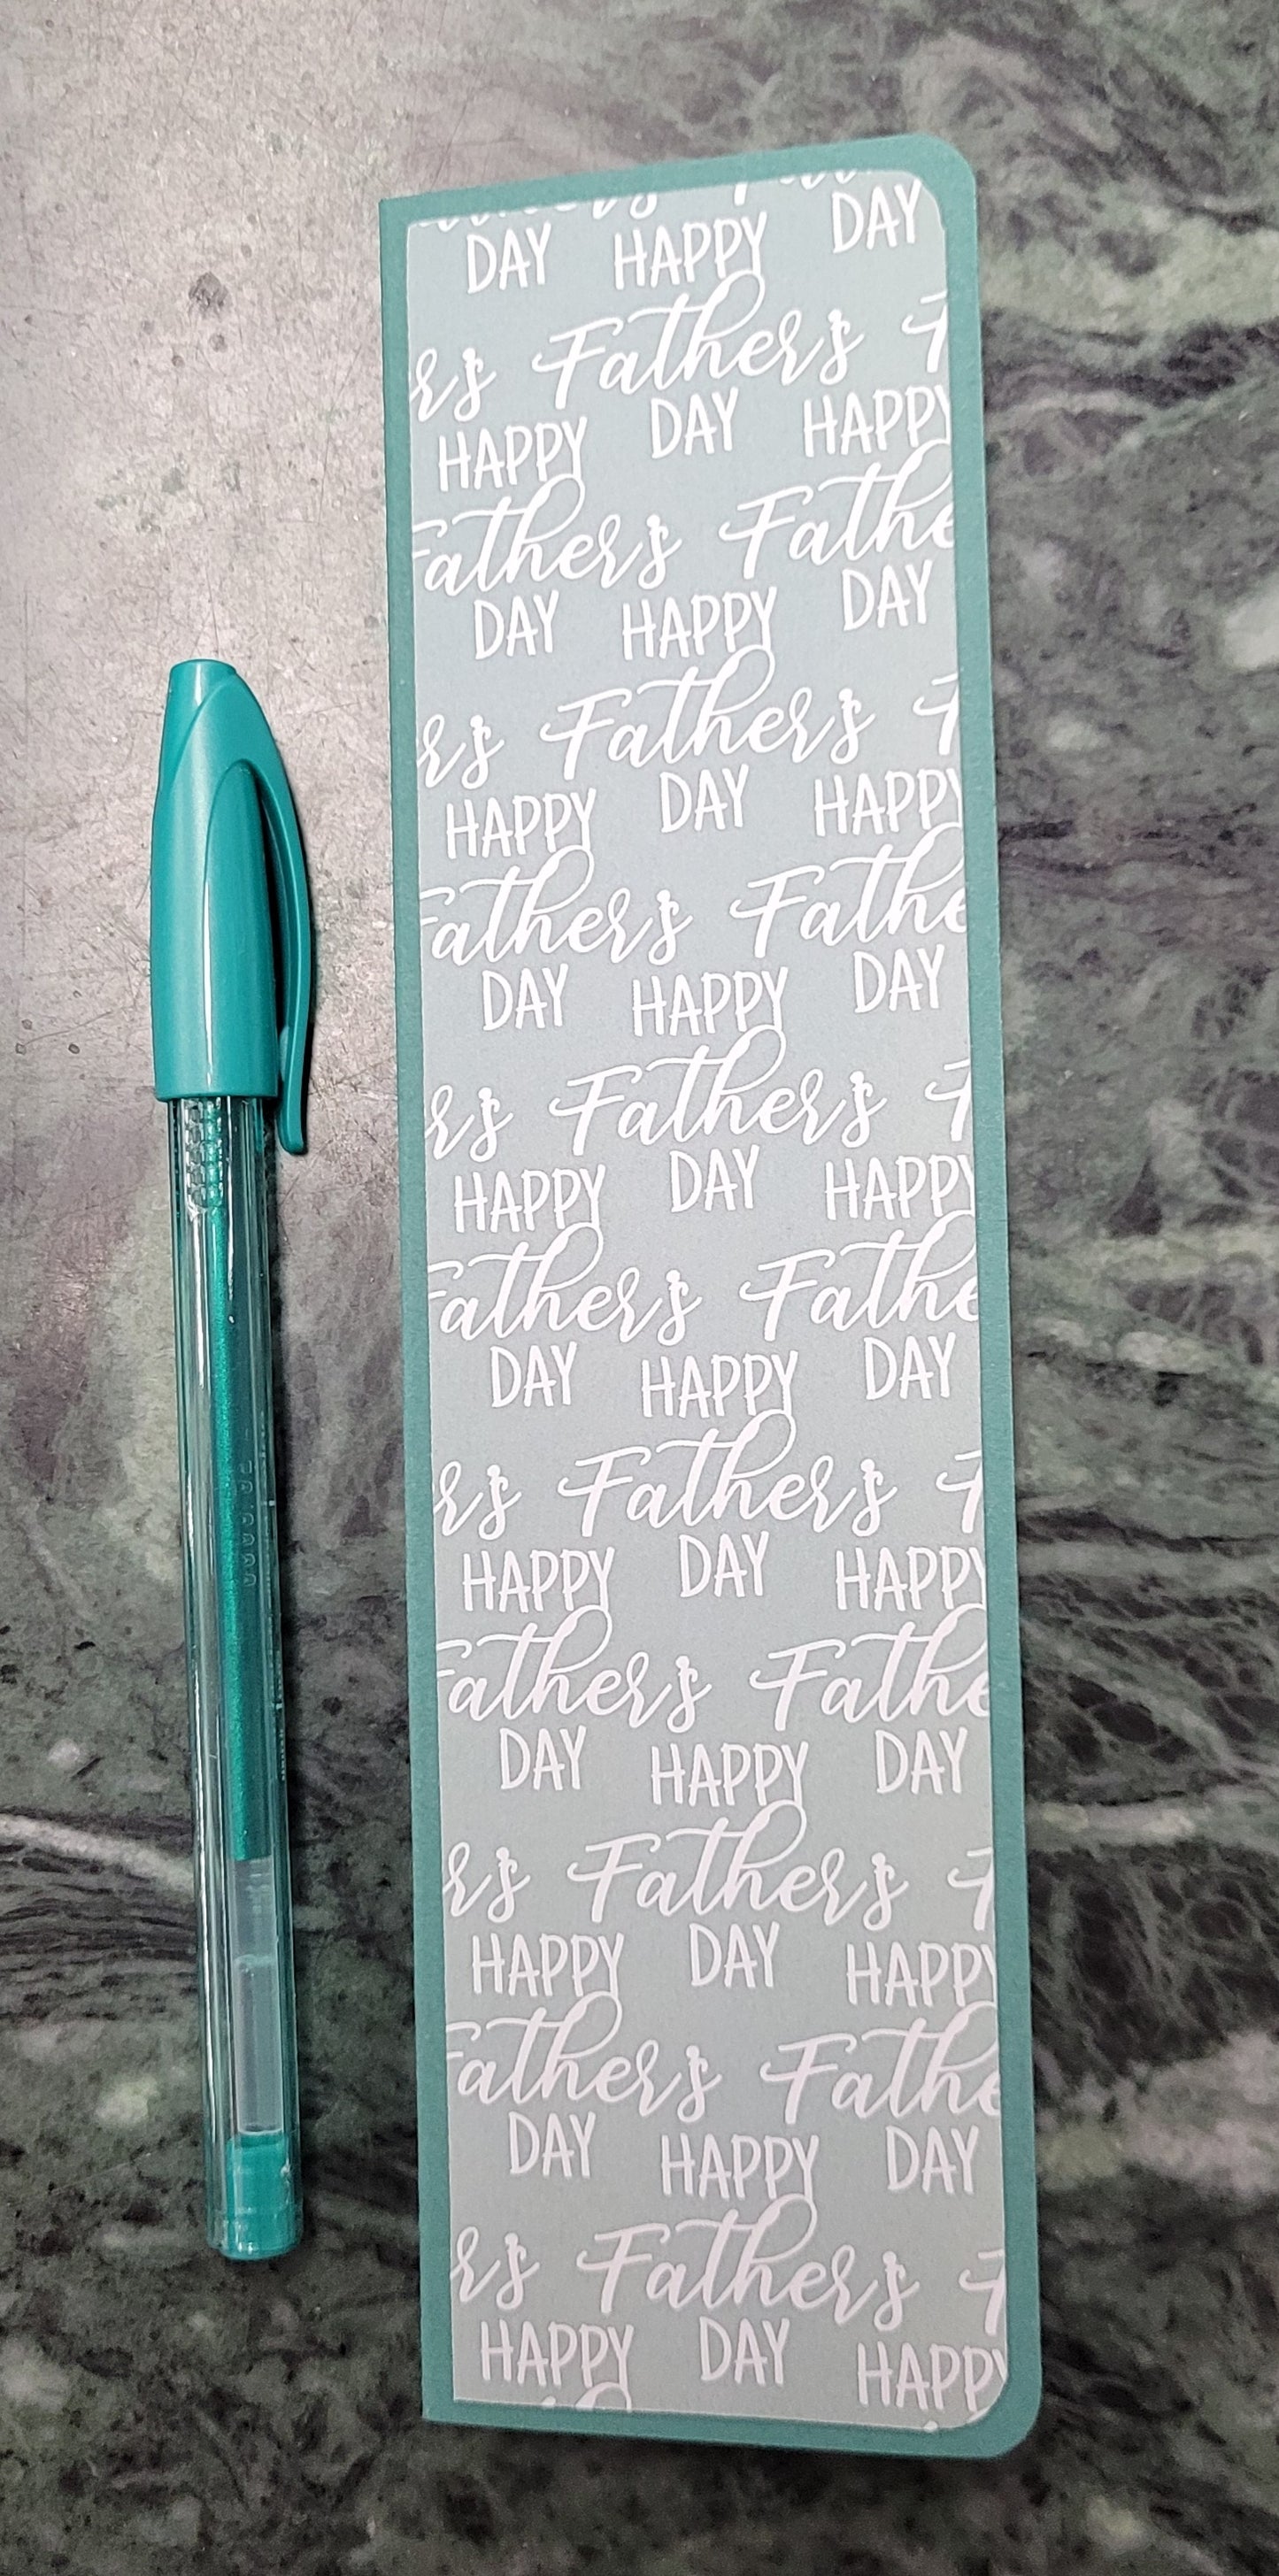 DAY HAPPY DAY
r's Father's F
HAPPY DAY HAPPY
Father's Fathe
DAY HAPPY DAY
r's Father's F
HAPPY DAY HAPPY
Father's Fathe
DAY HAPPY DAY
r's Father's F
HAPPY DAY HAPPY
Father's Fathe
DAY HAPPY DAY
r's Father's F
HAPPY DAY HAPPY
Father's Fathe
DAY HAPPY DAY
r's Father's F
HAPPY DAY HAPPY
Father's Fathe
DAY HAPPY DAY
r's Father's F
HAPPY DAY HAPPY